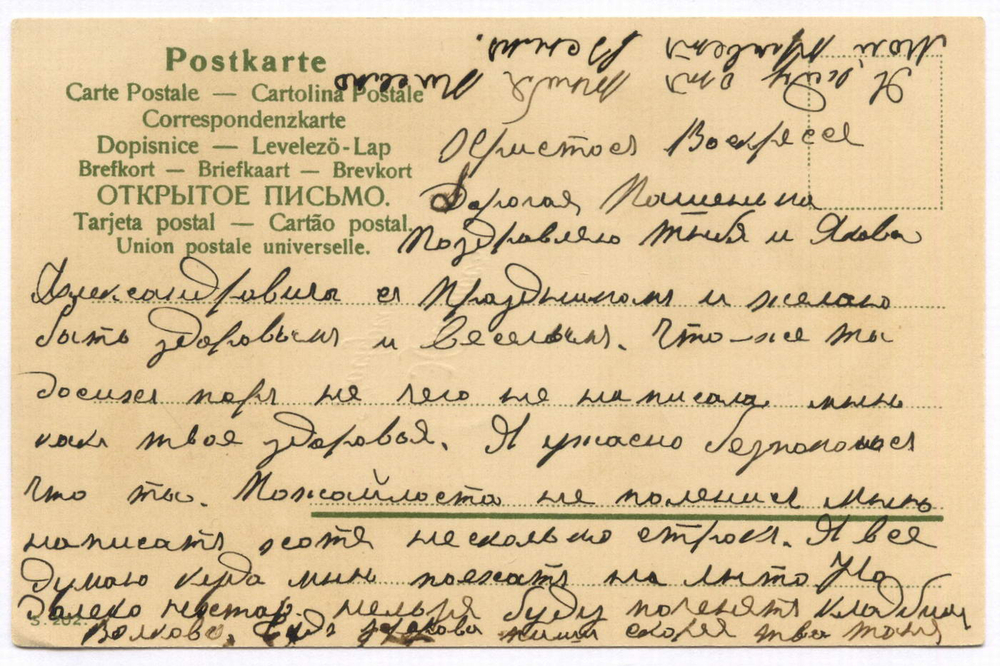 Postkarte
Carte Postale — Cartolina Postale
Correspondenzkarte
Dopisnice — Levelező-Lap
Brefkort — Briefkaart — Brevkort
ОТКРЫТОЕ ПИСЬМО.
Tarjeta postal — Cartão postal.
Union postale universelle.
Христосъ Воскресе
Дорогая Пашенька
Поздравляю тыбя и Якова
Александровича съ Праздникомъ и желаю
быть здоровымъ и веселымъ. Что-же ты
досихъ поръ не чего не написала мынь
какъ твое здоровья. Я ужасно безпокоюсь
что ты. Можайлоста не полѣнись мынь
написать хотя несколько строкъ. Я все
думаю куда мынь поехать на лыто На
далеко нельзя буду
Волкова. скоряя твоя тоня
Я жду отъ тибя писемо
Мой приветъ
S. 202